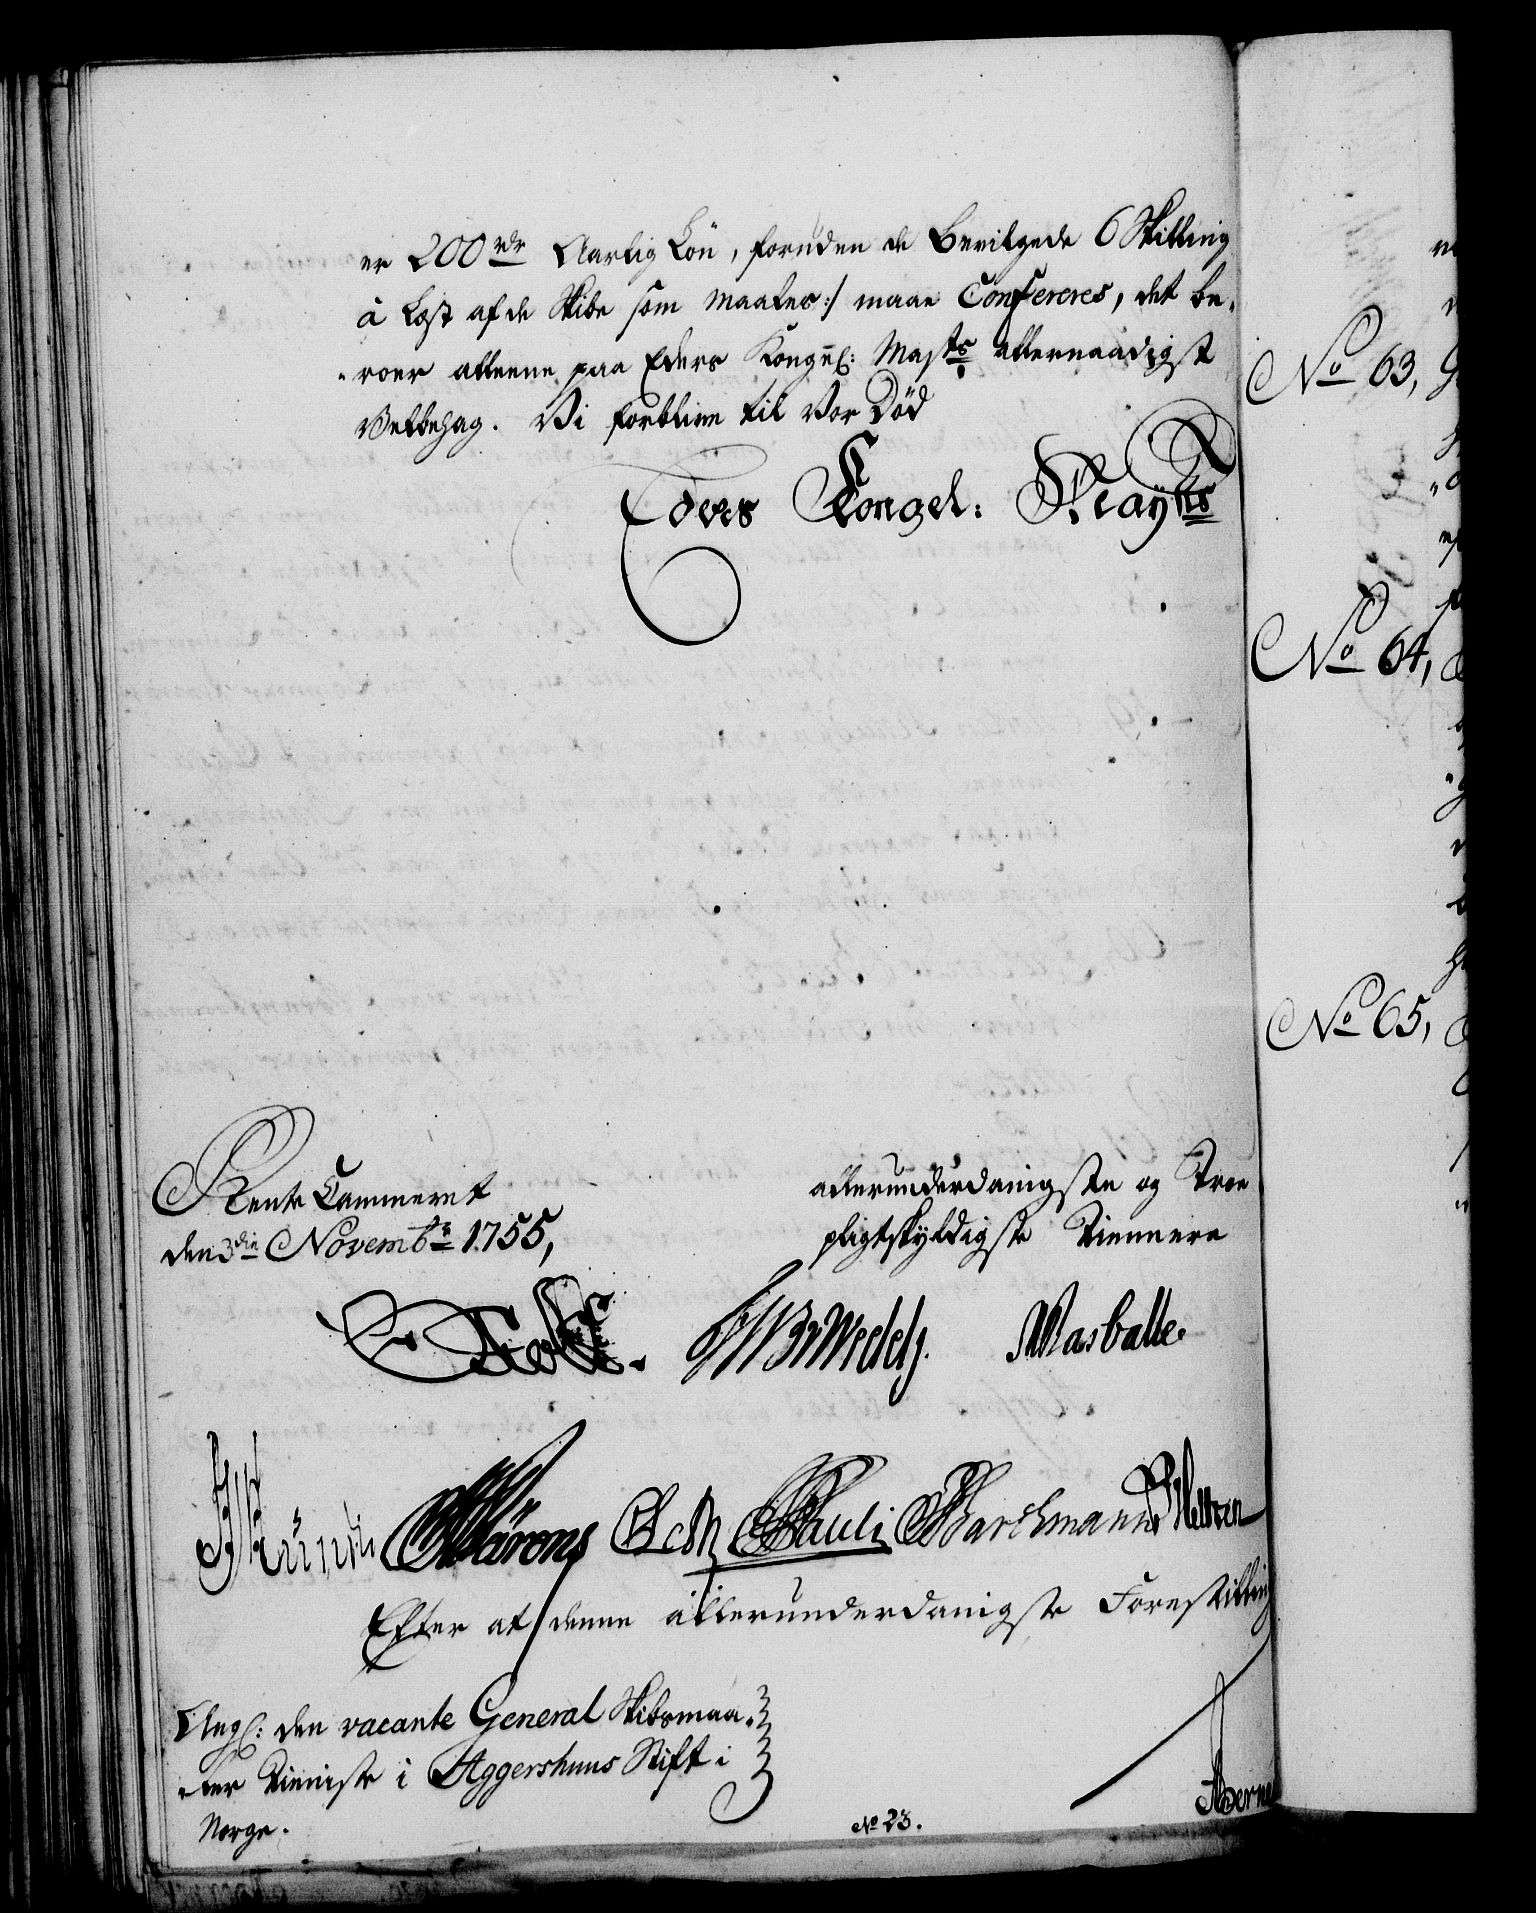 er 200 rdr Aarlig Løn, foruden de bevilgede 6 Skilling
à Læst af de Skibe som maales :/ maae Confereres, det be-
-roer alleene paa Eders Kongel: Mayts allernaadigst
Velbehag. Vi forblive til vor Død
Eders Kongel: Mayts
No 63,
No 64,
No 65,
Rente Cammeret
den 3die Novembr 1755,
allerunderdanigste og Troe
pligtskyldigste Tiennere
Holst. Wedel. Masballe.
Pauli Barchmann
Efter at denne allerunderdanigste Forestilling
Ang: den vacante General Skibsmaa-
-ler Tieniste i Aggershuus Stift i
Norge.
No 23.